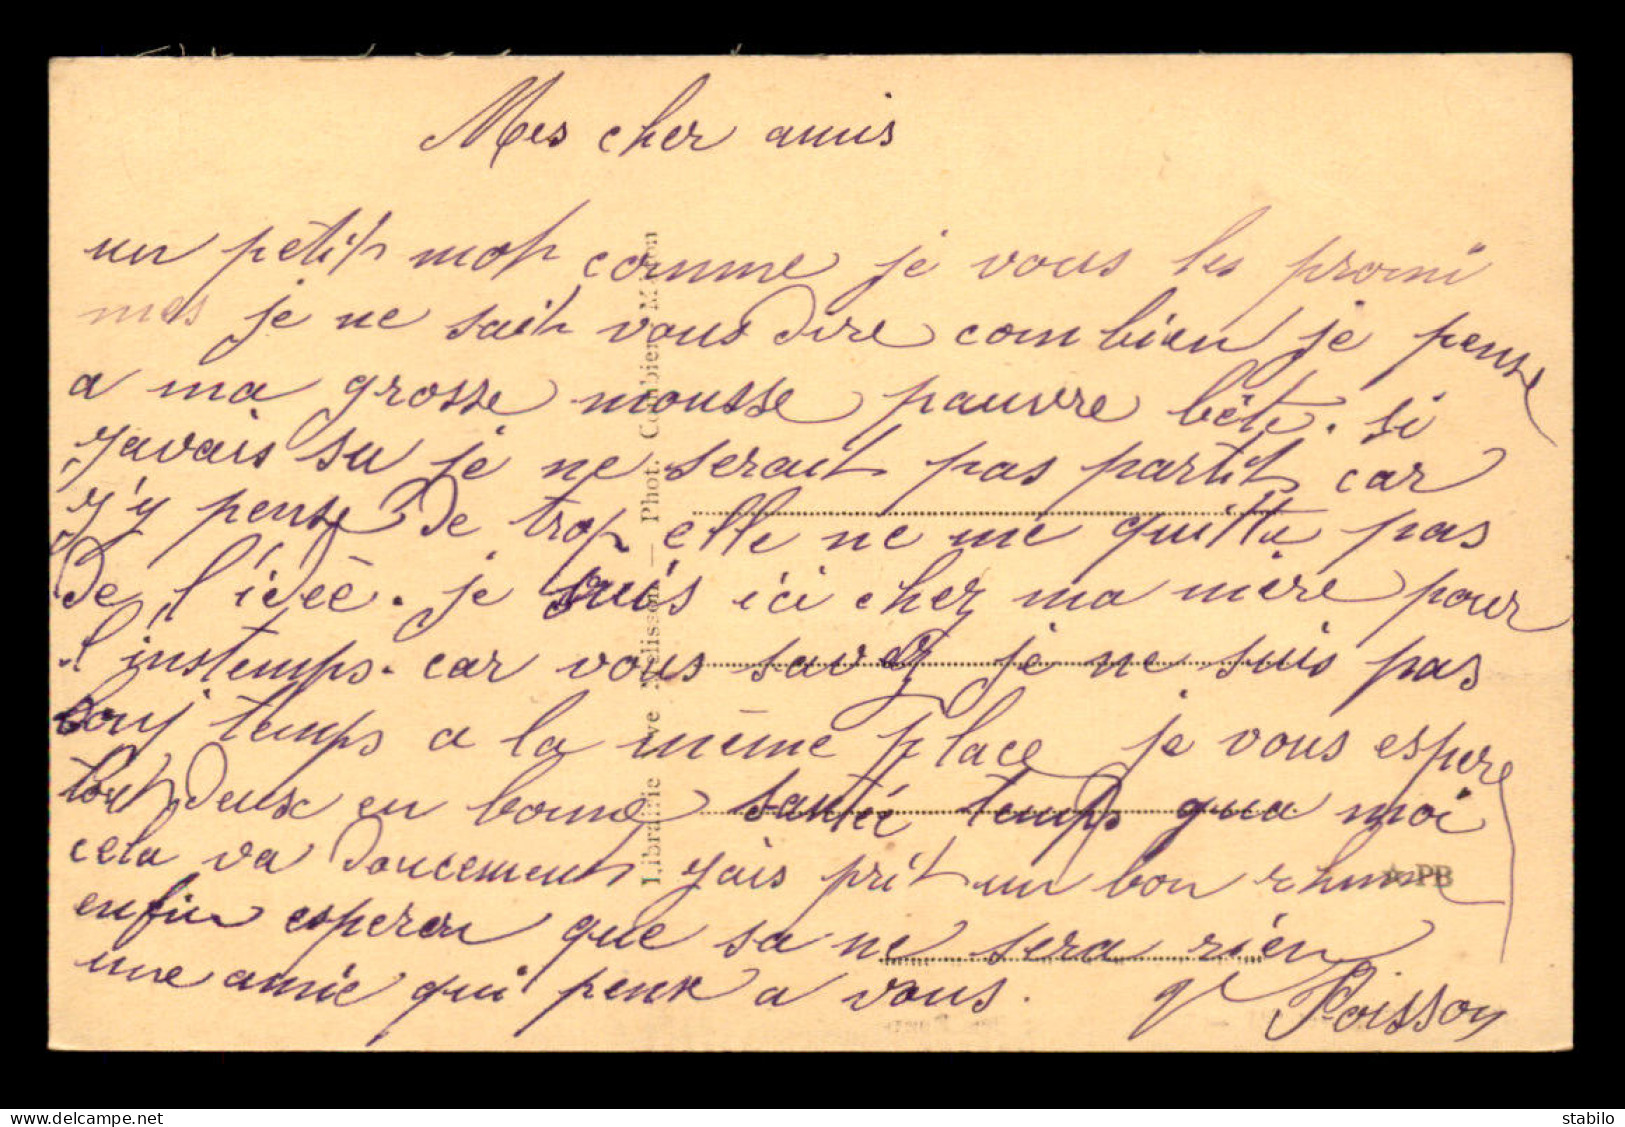 Mes cher amis
un petit mot comme je vous les promi
mes je ne sait vous dire combien je pense
a ma grosse mousse pauvre bête. si
j'avais su je ne serait pas partit car
j'y pense de trop elle ne me quitte pas
de l'idée. je suis ici chez ma mère pour
l'instemps. car vous savez je ne suis pas
louj temps a la même place je vous espere
tout deux en bonne santée temps qua moi
cela va doucement j'ais prit un bon rhume
enfin esperen que sa ne sera rien
une amie qui pense a vous. Poisson
Librairie Vve Melisson — Phot. Combier Macon
PB
delcampe.net
stabilo